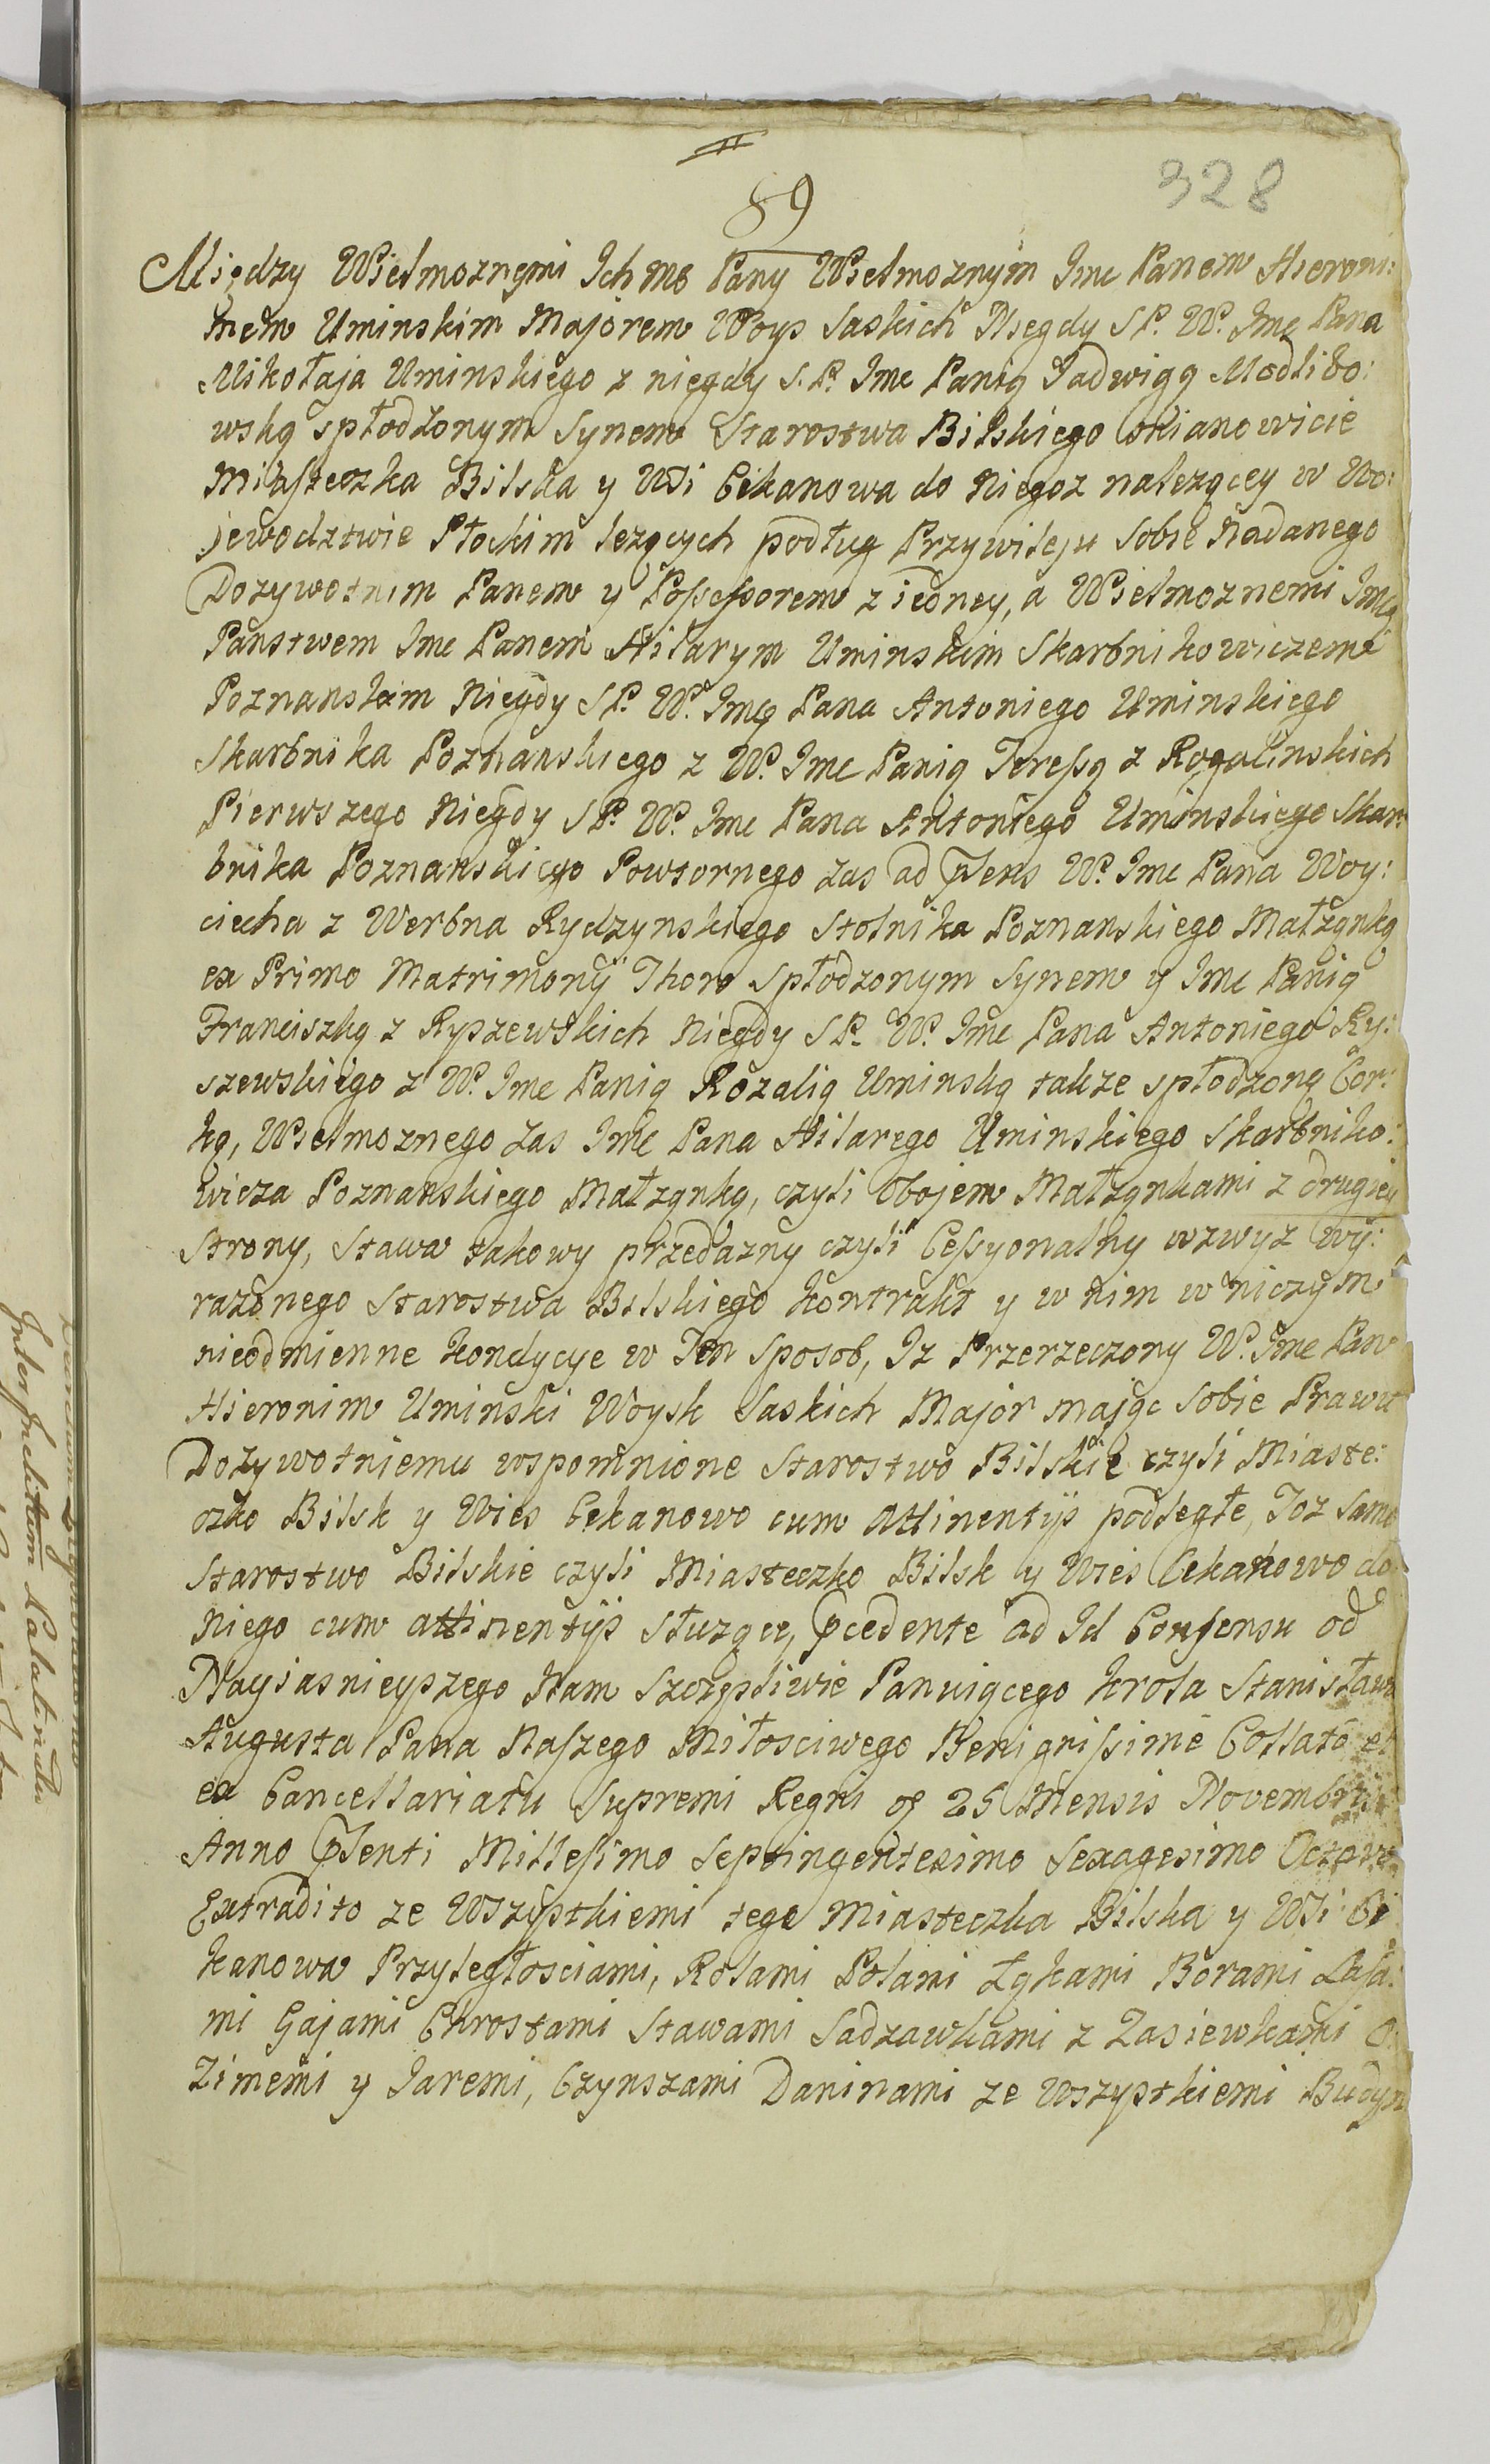 328
89
Między Wielmoznymi Ich Mo Pany Wielmoznym Jmc Panem Hieroni:
mem Uminskim Majorem Woys Saskich Niegdy S P. W. Jmc Pana
Mikołaja Uminskiego z niegdy S. P. Jmc Panią Jadwigą Modlibo:
wską spłodzonym Synem Starostwa Bilskiego mianowicie
Miasteczka Bilska y Wsi Cekanowa do Niegoz nalezącey w Wo:
jewodztwie Płockim lezących podług Przywileju Sobie Nadanego
Dozywotnim Panem y Possessorem z iedney, a Wielmoznemi Jmc
Panstwem Jmc Panem Hilarym Uminskim Skarbnikowiczem
Poznanskim Niegdy S P. W. Jmc Pana Antoniego Uminskiego
Skarbnika Poznanskiego z W. Jmc Panią Teressą z Rogalinskich
Pierwszego Niegdy S P. W. Jmc Pana Antoniego Uminskiego Skar:
bnika Poznanskiego Powtornego zas ad psens W. Jmc Pana Woy:
ciecha z Werbna Rydzynskiego Stolnika Poznanskiego Małząnką
ex Primo Matrimonÿ Thoro Spłodzonym Synem y Jmc Panią
Franciszką z Ryszewskich Niegdy S P. W. Jmc Pana Antoniego Ry:
szewskiego z W. Jmc Panią Rozalią Uminską takze spłodzoną Cor:
ką, Wielmoznego zas Jmc Pana Hilarego Uminskiego Skarbniko:
wicza Poznanskiego Małzanką, czyli Obojem Małząnkami z drugiey
Strony, Stawa takowy przedazny czyli Cessyonalny wzwyz wy:
razonego Starostwa Bilskiego Kontrakt y w nim w niczym
nieodmienne Kondycye w Ten Sposob, Iz Przerzeczony W. Jmc Pan
Hieronim Uminski Woysk Saskich Major mając Sobie Prawu
Dozywotniemu wspomnione Starostwo Bilskie czyli Miaste:
czko Bilsk y Wies Cekanowo cum Attinentÿs podległe, Toz Samo
Starostwo Bilskie czyli Miasteczko Bilsk y Wies Cekanowo do
niego cum attinentÿs słuzące, pcedente ad Id Consensu od
Nayjasnieyszego Nam Szczęsliwie Panuiącego Krola Stanisława
Augusta Pana Naszego Miłosciwego Benignissime Collato et
ex Cancellariatu Supremi Regni 25 Mensis Novembris
Anno psenti Millesimo Septingentesimo Sexagesimo Octavo
Extradito ze Wszystkiemi tego Miasteczka Bilska y Wsi Ce
kanowa Przyległosciami, Rolami Polami Łąkami Borami Lasa:
mi Gajami Chrostami Stawami Sadzawkami z Zasiewkami O:
Zimemi y Jaremi, Czynszami Daninami ze Wszystkiemi Budyn
Inter Inclitum Palatinatu